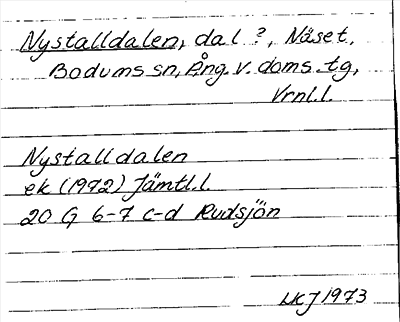 Nystalldalen, dal ?, Näset,
Bodums sn, Ång. v. doms. tg,
Vrnl.l.
Nystalldalen
ek (1972) Jämtl.l
20 G 6-7 c-d Rudsjön
LKJ 1973